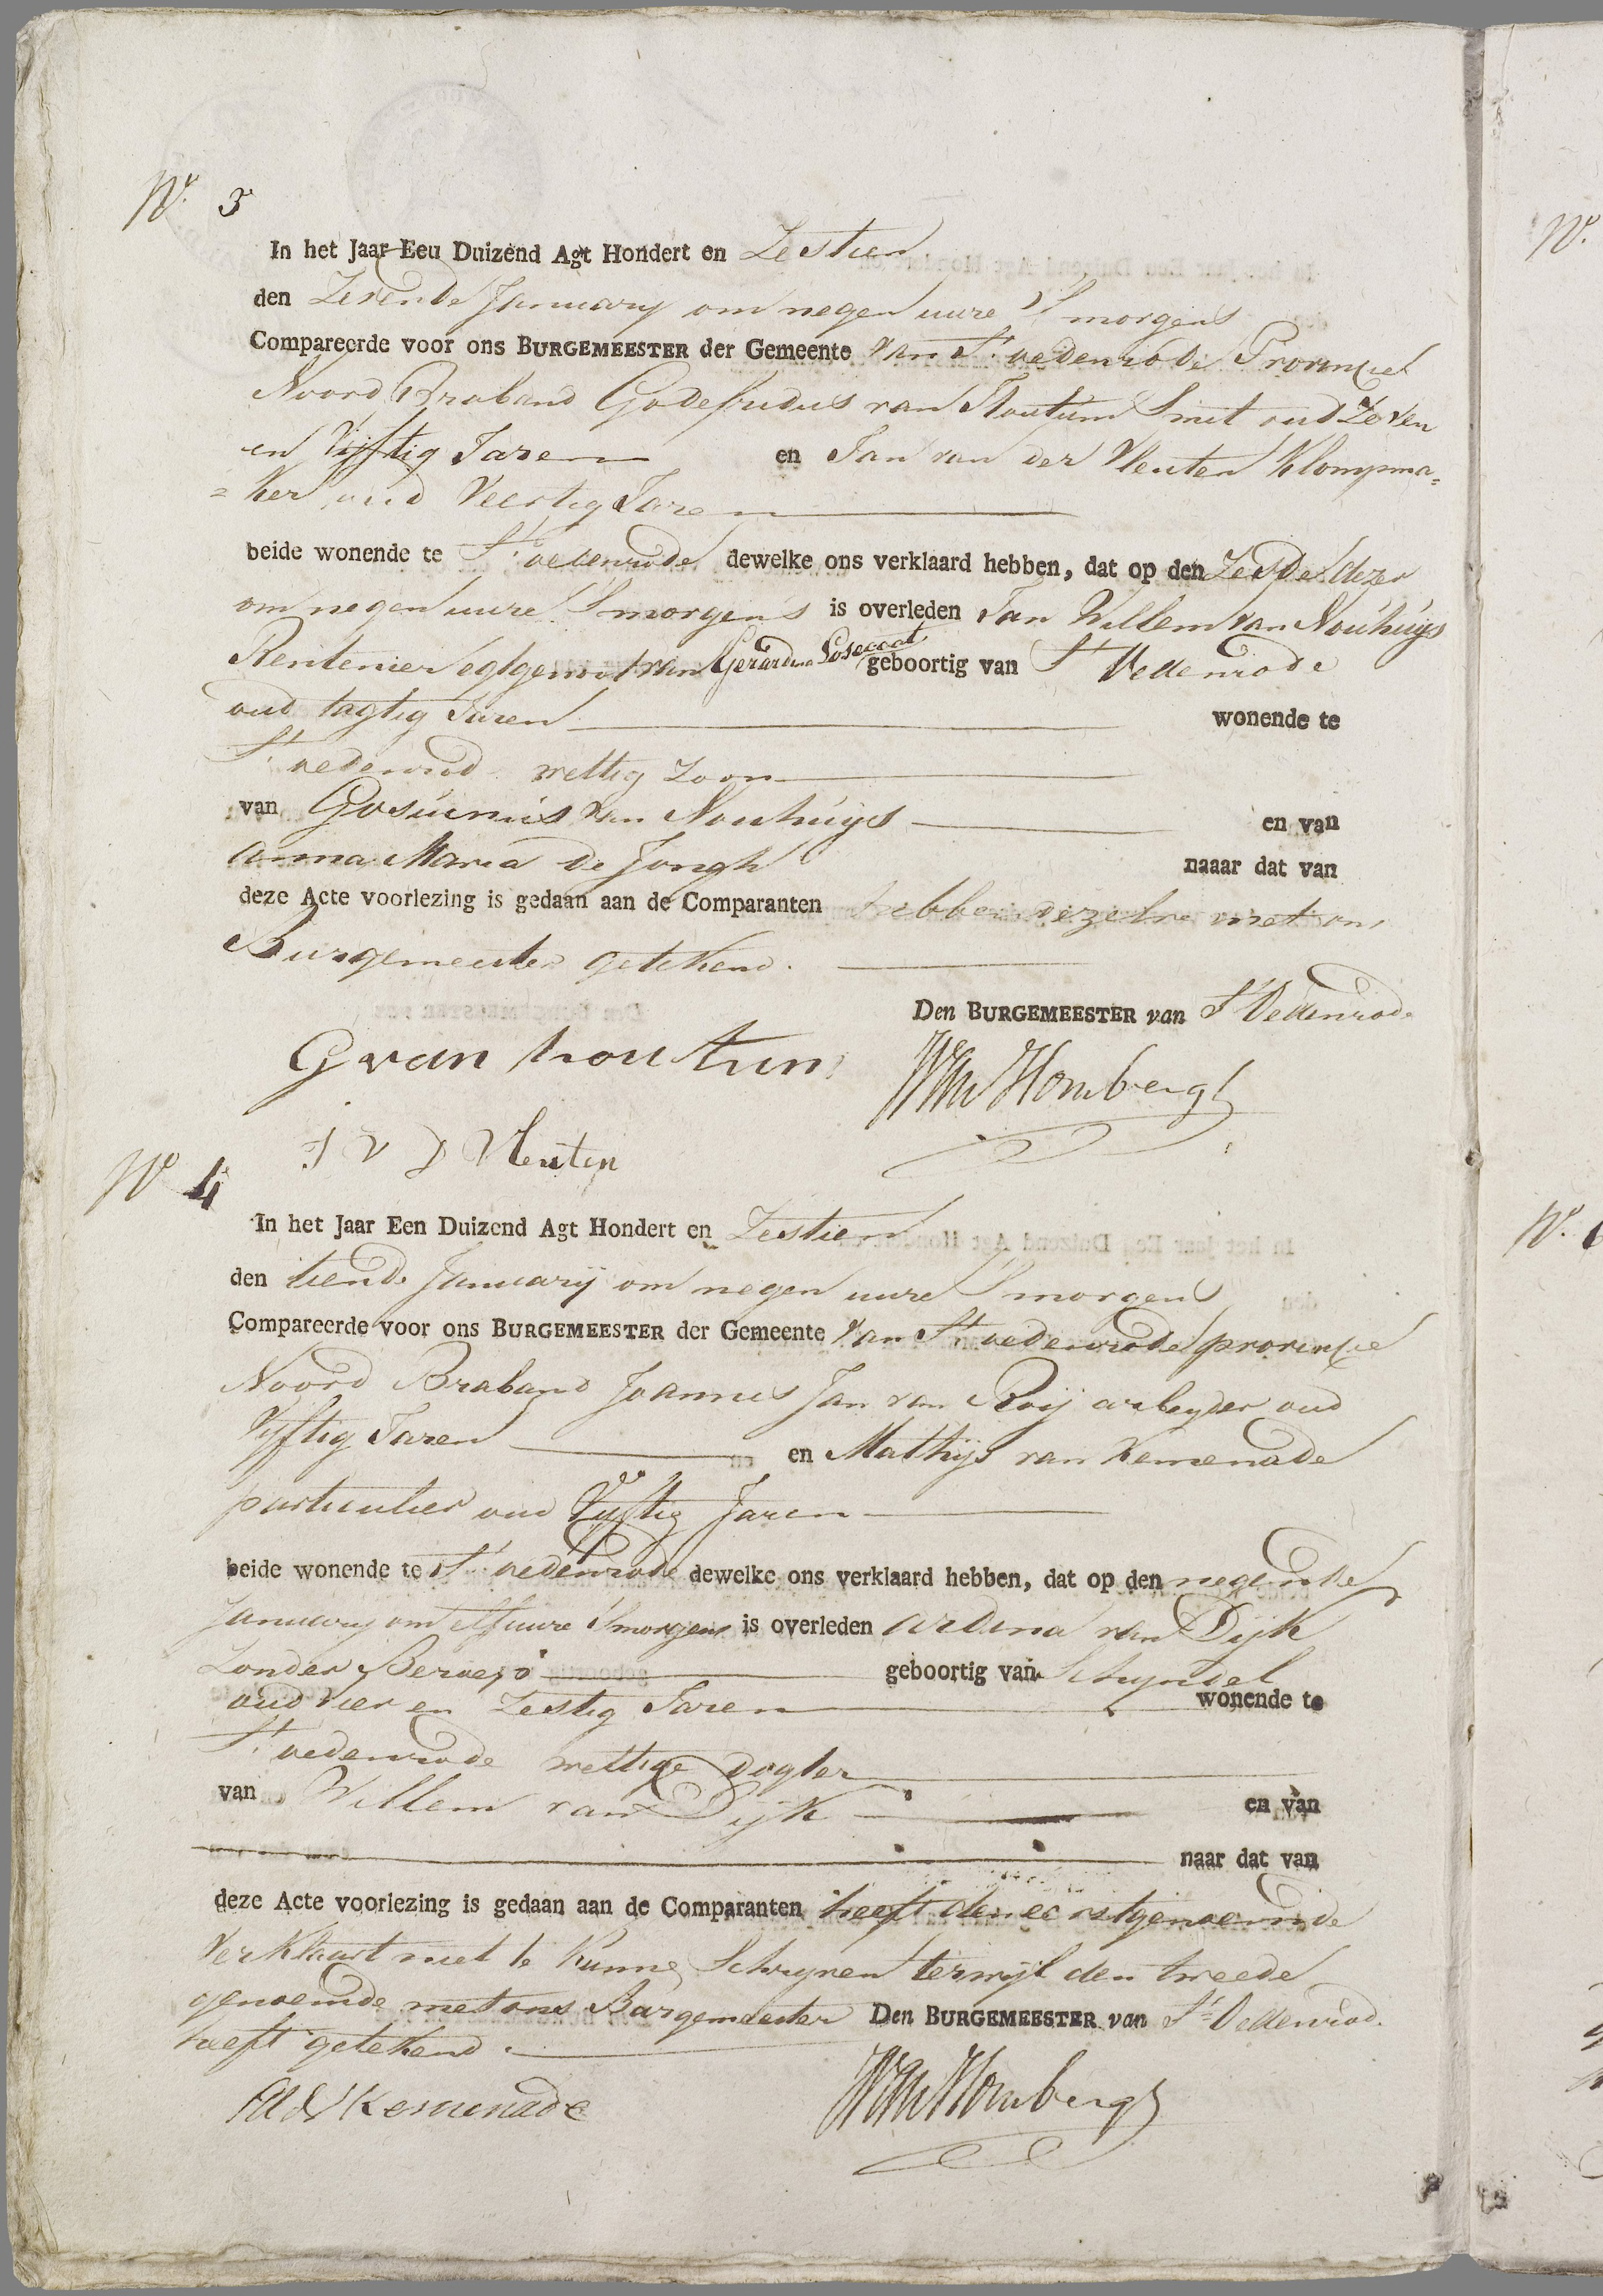 No. 3
In het Jaar Eeu Duizend Agt Hondert en Zestien
den Zevende January om negen uure S morgens
Compareerde voor ons BURGEMEESTER der Gemeente van St. oedenrode Provincie
Noord Braband Godefridus van Houtum Smit oud Zeven
en Vijftig Jaren en Jan van der Vleuten Klompma=
=ker oud Veertig Jaren
beide wonende te St. oedenrode dewelke ons verklaard hebben, dat op den Zesde dezer
om negen uure S morgens is overleden Jan Willem van Nouhuijs
Rentenier egtgenoot van Gerardina geboortig van St Oedenrode
oud tagtig Jaren wonende te
St. oedenrod wettig zoon
van Gosuinus van Nouhuijs en van
Anna Maria de Jongh naaar dat van
deze Acte voorlezing is gedaan aan de Comparanten hebben dezelve met ons
Burgemeester getekend.
Den BURGEMEESTER van St Oedenrode
G van houtum
J V D Vleuten
No 4
In het Jaar Een Duizend Agt Hondert en Zestien
den tiende Januarij om negen uure S morgens
Compareerde voor ons BURGEMEESTER der Gemeente van St oedenrode provincie
Noord Braband Joannes Jan van Roij arbeyder oud
Vijftig Jaren en Mathijs van Kemenade
particulier oud Vijftig Jaren
beide wonende te St. oedenrode dewelke ons verklaard hebben, dat op den negende
January om elf uure Smorgens is overleden ardina van Dijk
Zonder Beroep geboortig van Schyndel
oud vier en Zestig Jaren wonende te
St. oedenrode wettige dogter
van Willem van Dijk en van
naar dat van
deze Acte voorlezing is gedaan aan de Comparanten heeft den eerstgenoemde
Verklaart niet te kunne Schryven terwijl den tweede
genoemde met ons Burgemeester Den BURGEMEESTER van St Oedenrod.
heeft getekend.
M V Kemenade
No.
No.